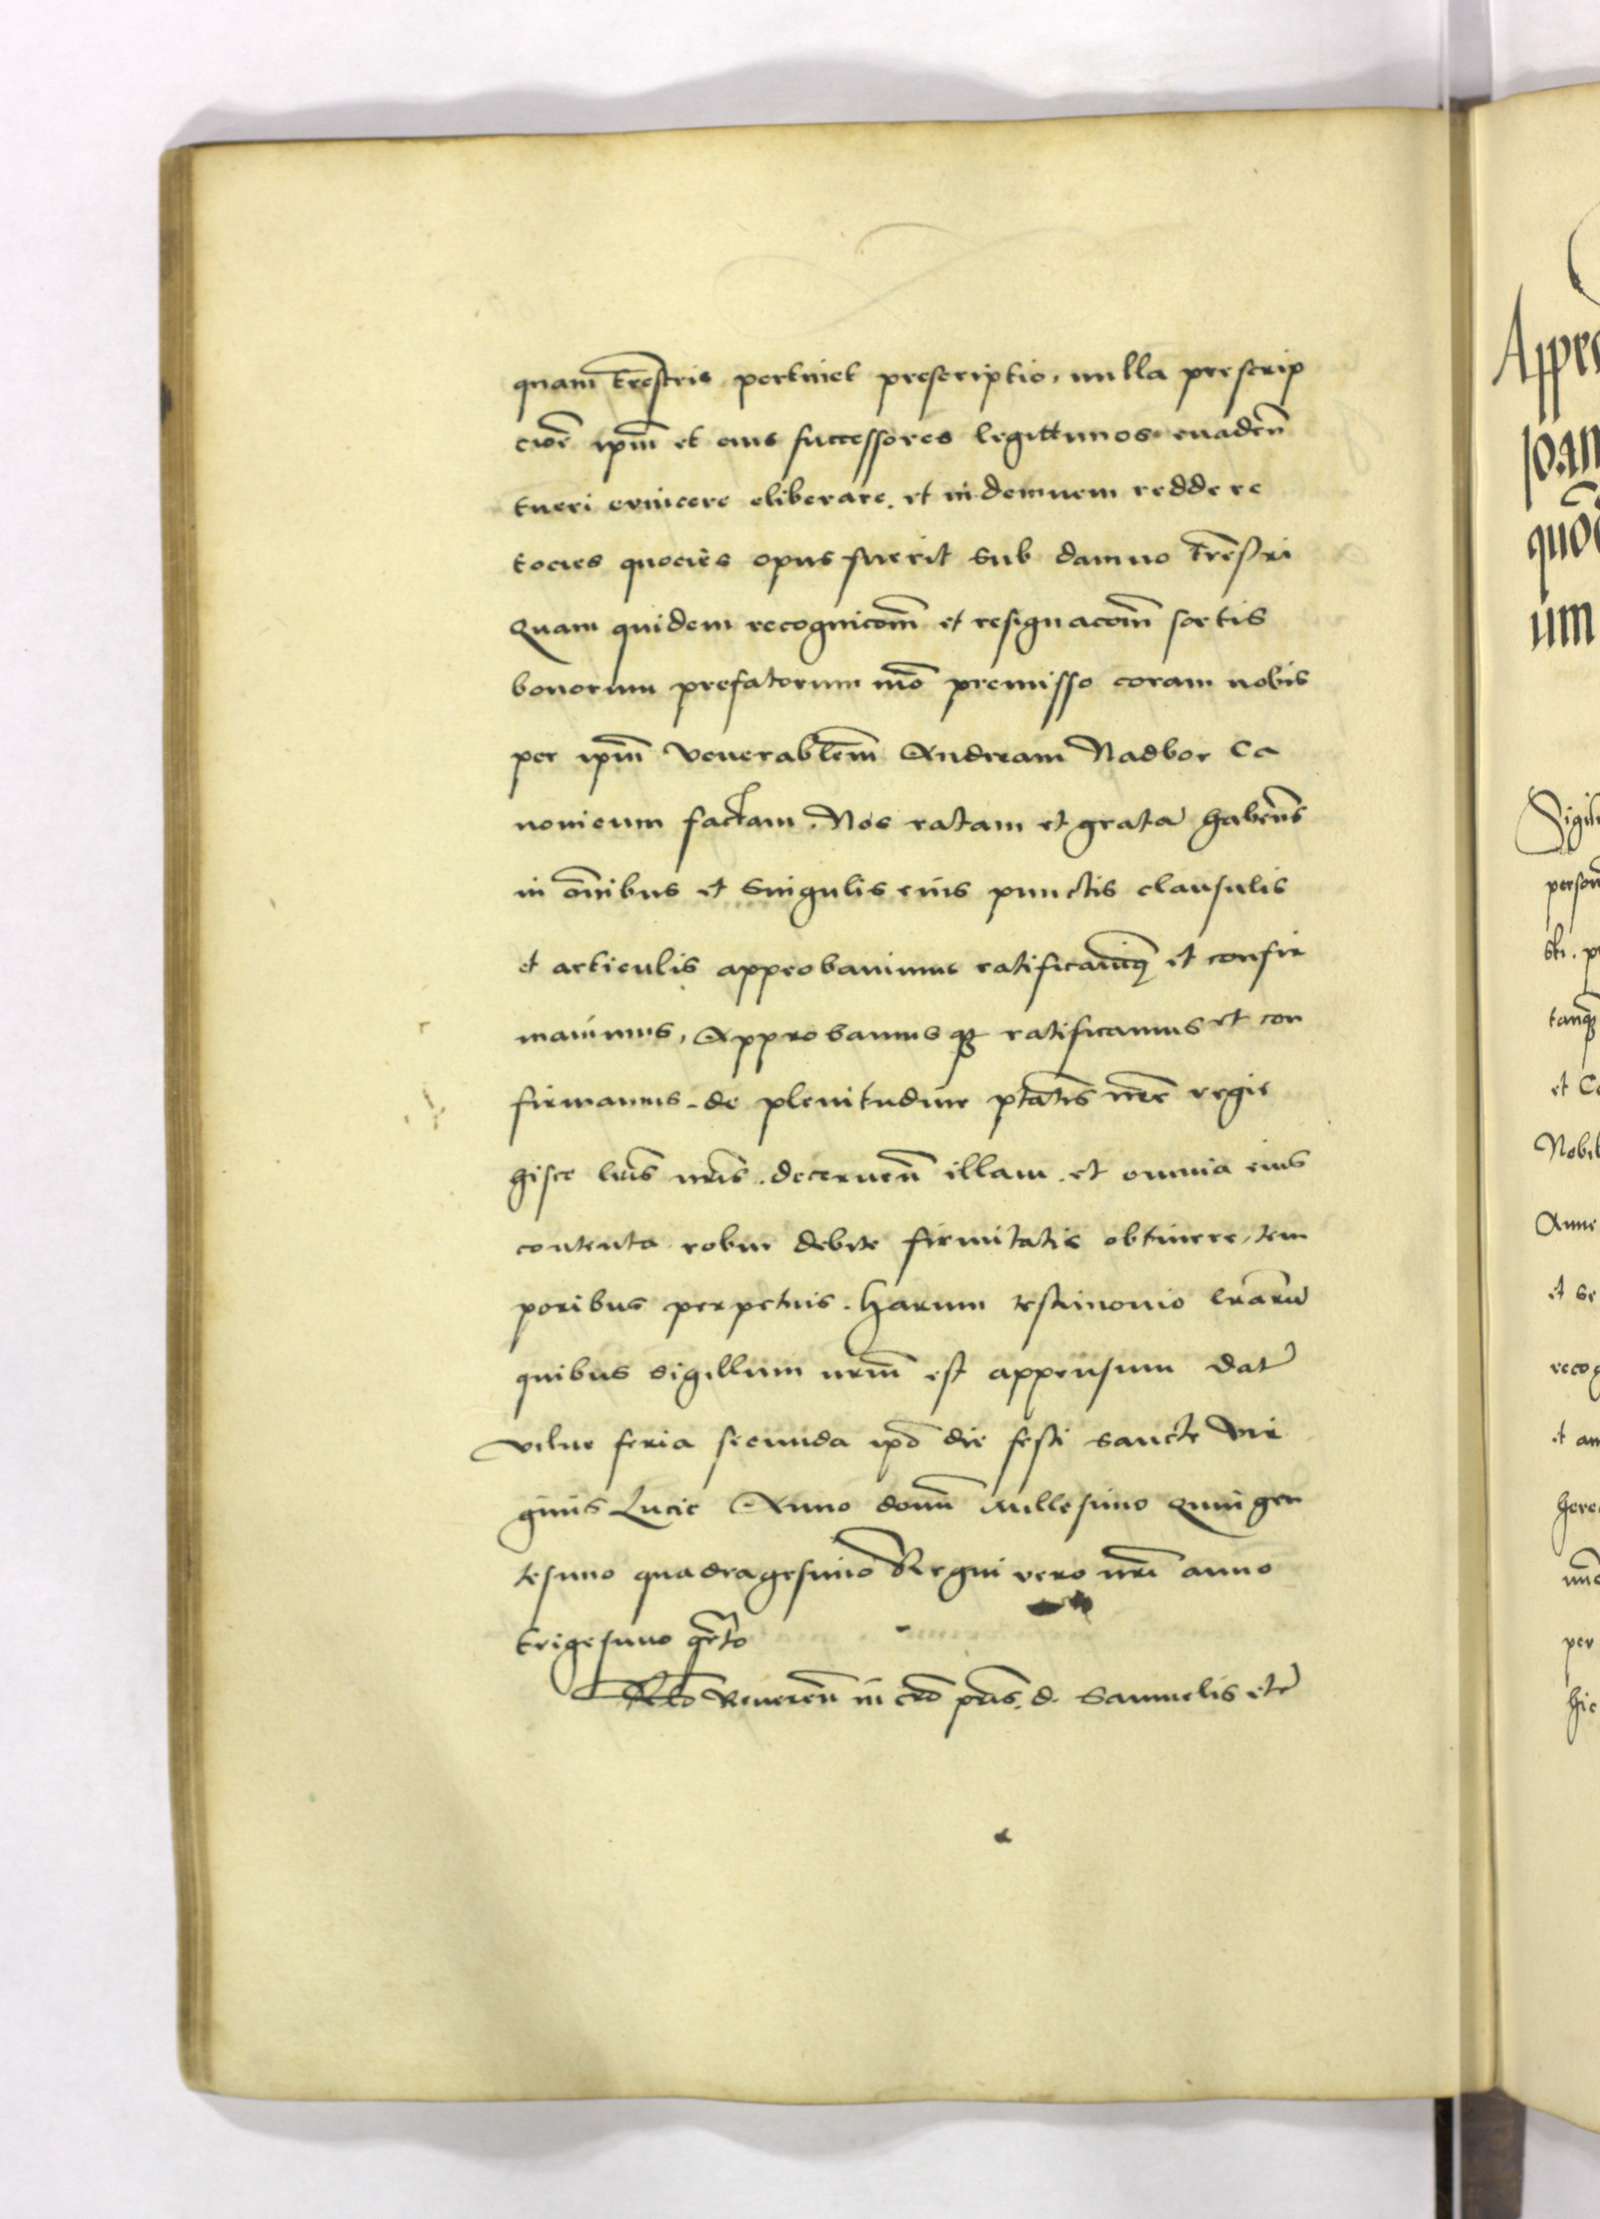 quam trestris pertinet prescriptio, nulla prescrip
cioe ipm et eius successores legittimos euadeñ
tueri evincere eliberare et indemnem reddere
tocies quocies opus fuerit sub damno trestri
Quam quidem recognicoem et resignacoem sortis
bonorum prefatorum mo premisso coram nobis
per ipm venerabilem Andream Nadbor Ca
nonicum factam. Nos ratam et gratā habens
in oibus et singulis eius punctis clausulis
et articulis approbauimus ratificauimq et confir
mauimus, Approbamus qz ratificamus et con
firmamus de plenitudine ptatis nre regie
hisce lris nris. decerneñ illam et omnia eius
contenta robur debite firmitatis obtinere, tem
poribus perpetuis. Harum testimonio lrarū
quibus sigillum nrm est appensum Dat
vilne feria secunda ipo die festi sancte Vir
ginis Lucie Anno domi Millesimo Quingen
tesimo quadragesimo Regni vero nri anno
trigesimo qrto
Rlo Reuereñ in cro pris. d. Samuelis etc
Appro
Joan
quod
um
Sigil
person
et Co
Nobil
Anne
et se
recog
et am
here
per
hic